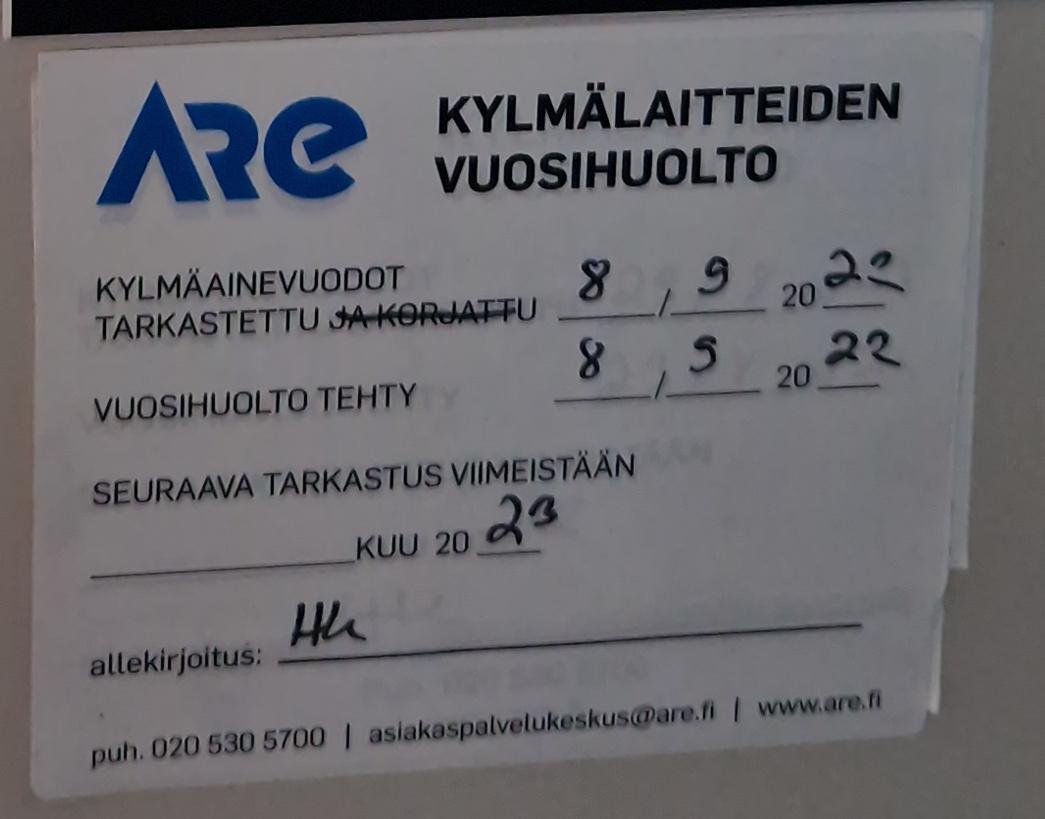 ARe KYLMÄLAITTEIDEN
VUOSIHUOLTO
KYLMÄAINEVUODOT
TARKASTETTU JA KORJATTU 8 / 9 2022
VUOSIHUOLTO TEHTY 8 / 9 2022
SEURAAVA TARKASTUS VIIMEISTÄÄN
KUU 2023
allekirjoitus:
puh. 020 530 5700 | asiakaspalvelukeskus@are.fi | www.are.fi